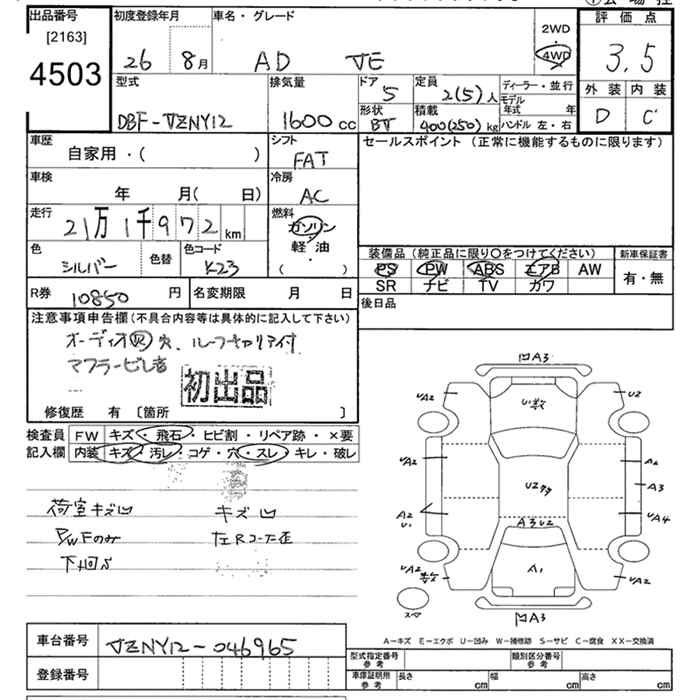 出品番号
[2163]
4503
初度登録年月
26 8月
車名・グレード
AD VE
2WD
4WD
評価点
3.5
外装 内装
D C
型式
DBF-VZNY12
排気量
1600cc
ドア
5
形状
BV
定員
2(5)人
積載
400(250)kg
ディーラー・並行
モデル年式 年
ハンドル 左・右
車歴
自家用・( )
シフト
FAT
セールスポイント(正常に機能するものに限ります)
車検
年 月( 日)
冷房
AC
走行
21万1千972km
燃料
ガソリン
軽・油
( )
色
シルバー
色替
色コード
K23
装備品(純正品に限り○をつけてください)
PS PW ABS エアB AW
SR ナビ TV カワ
新車保証書
有・無
R券 10850円
名変期限 月 日
後日品
注意事項申告欄(不具合内容等は具体的に記入して下さい)
オーディオ穴、ルーフキャリア付
マフラーサビ
初出品
修復歴 有 〔箇所 〕
検査員記入欄
FW キズ・飛石・ヒビ割・リペア跡・×要
内装 キズ・汚レ・コゲ・穴・スレ・キレ・破レ
荷室キズ凹 キズ凹
PWFのみ 左Rコーナー歪
下回り
A3
UA2 U2
UA2 A2
U2
A3
A2 UA4
U1
A3U2
UA2 UA2
A1
A3
スマ
A-キズ E-エクボ U-凹み W-補修跡 S-サビ C-腐食 XX-交換済
車台番号 VZNY12-046965
登録番号
型式指定番号 参考
類別区分番号 参考
車庫証明所 参考
長さ cm 幅 cm 高さ cm